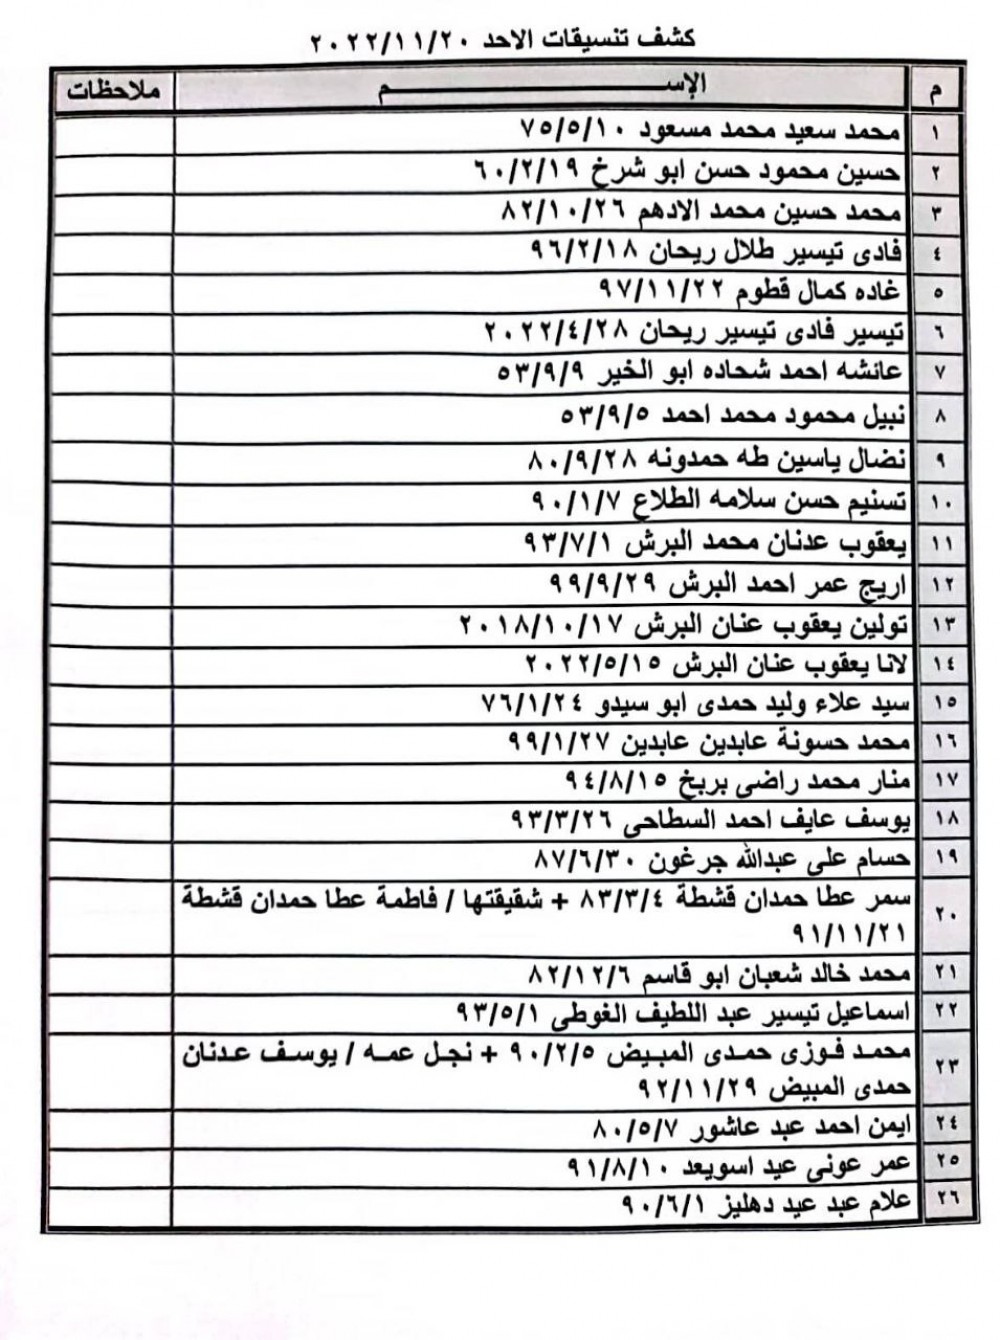 كشف تنسيقات الاحد ٢٠٢٢/١١/٢٠
م الإســـــــــــــم ملاحظات
١ محمد سعيد محمد مسعود ٧٥/٥/١٠
٢ حسين محمود حسن ابو شرخ ٦٠/٢/١٩
٣ محمد حسين محمد الادهم ٨٢/١٠/٢٦
٤ فادى تيسير طلال ريحان ٩٦/٢/١٨
٥ غاده كمال قطوم ٩٧/١١/٢٢
٦ تيسير فادى تيسير ريحان ٢٠٢٢/٤/٢٨
٧ عائشه احمد شحاده ابو الخير ٥٣/٩/٩
٨ نبيل محمود محمد احمد ٥٣/٩/٥
٩ نضال ياسين طه حمدونه ٨٠/٩/٢٨
١٠ تسنيم حسن سلامه الطلاع ٩٠/١/٧
١١ يعقوب عدنان محمد البرش ٩٣/٧/١
١٢ اريج عمر احمد البرش ٩٩/٩/٢٩
١٣ تولين يعقوب عنان البرش ٢٠١٨/١٠/١٧
١٤ لانا يعقوب عنان البرش ٢٠٢٢/٥/١٥
١٥ سيد علاء وليد حمدى ابو سيدو ٧٦/١/٢٤
١٦ محمد حسونة عابدين عابدين ٩٩/١/٢٧
١٧ منار محمد راضى بربخ ٩٤/٨/١٥
١٨ يوسف عايف احمد السطاحى ٩٣/٣/٢٦
١٩ حسام على عبدالله جرغون ٨٧/٦/٣٠
٢٠ سمر عطا حمدان قشطة ٨٣/٣/٤ + شقيقتها / فاطمة عطا حمدان قشطة
٩١/١١/٢١
٢١ محمد خالد شعبان ابو قاسم ٨٢/١٢/٦
٢٢ اسماعيل تيسير عبد اللطيف الغوطى ٩٣/٥/١
٢٣ محمد فوزى حمدى المبيض ٩٠/٢/٥ + نجل عمه / يوسف عدنان
حمدى المبيض ٩٢/١١/٢٩
٢٤ ايمن احمد عبد عاشور ٨٠/٥/٧
٢٥ عمر عونى عيد اسويعد ٩١/٨/١٠
٢٦ علام عبد عيد دهليز ٩٠/٦/١